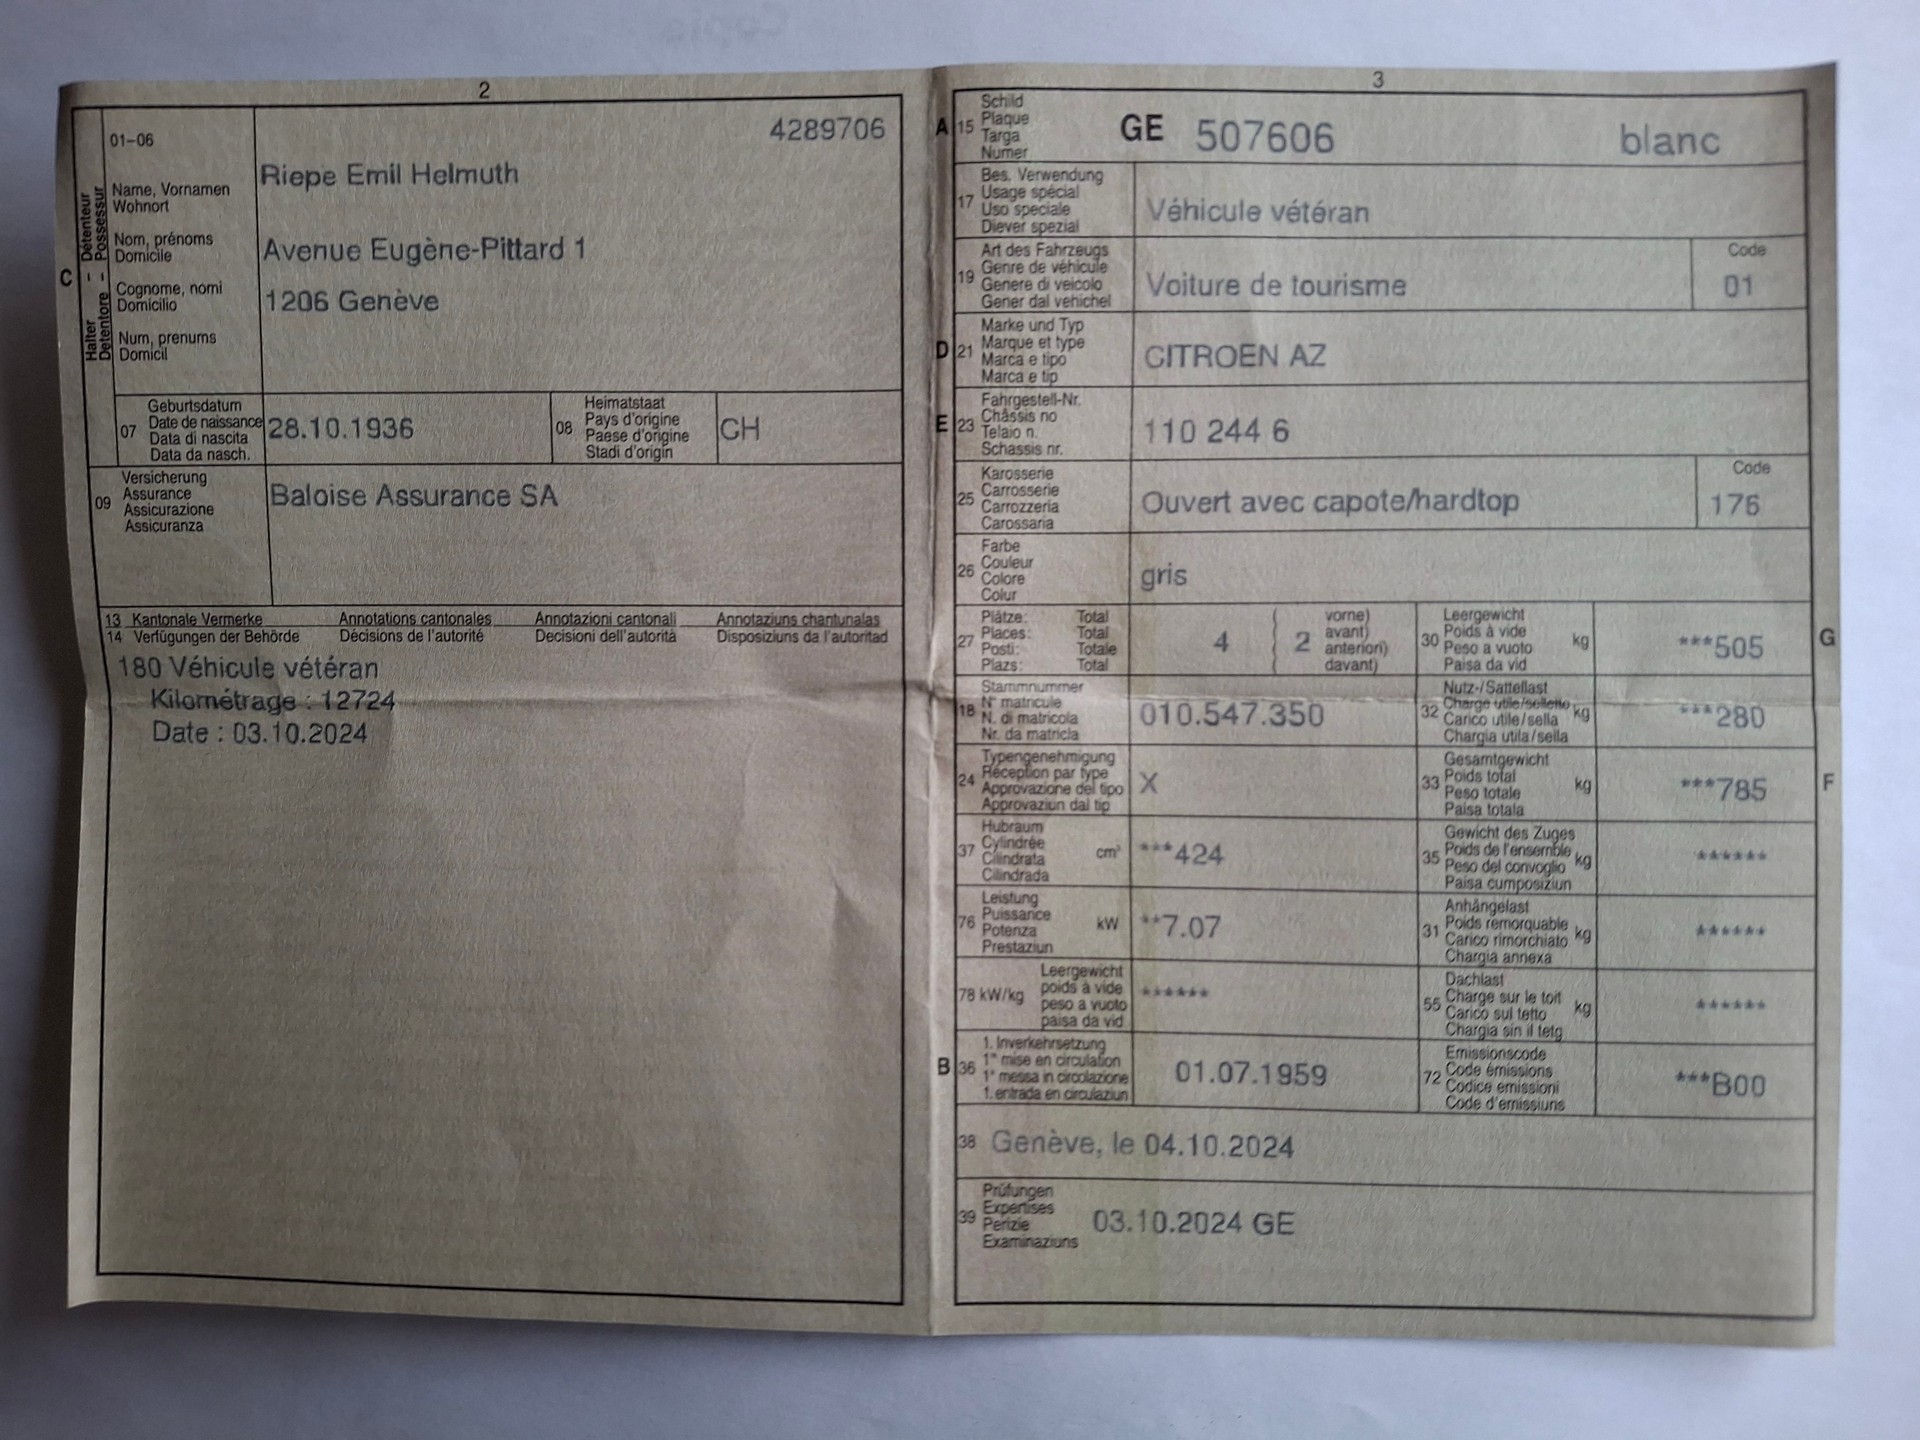 2
01-06
4289706
C
Halter - Détenteur
Detentore - Possessur
Name, Vornamen
Wohnort
Nom, prénoms
Domicile
Cognome, nomi
Domicilio
Num, prenums
Domicil
Riepe Emil Helmuth
Avenue Eugène-Pittard 1
1206 Genève
07
Geburtsdatum
Date de naissance
Data di nascita
Data da nasch.
28.10.1936
08
Heimatstaat
Pays d'origine
Paese d'origine
Stadi d'origin
CH
09
Versicherung
Assurance
Assicurazione
Assicuranza
Baloise Assurance SA
13 Kantonale Vermerke Annotations cantonales Annotazioni cantonali Annotaziuns chantunalas
14 Verfügungen der Behörde Décisions de l'autorité Decisioni dell'autorità Disposiziuns da l'autoritad
180 Véhicule vétéran
Kilométrage : 12724
Date : 03.10.2024
3
A 15
Schild
Plaque
Targa
Numer
GE 507606 blanc
17
Bes. Verwendung
Usage spécial
Uso speciale
Diever spezial
Véhicule vétéran
19
Art des Fahrzeugs
Genre de véhicule
Genere di veicolo
Gener dal vehichel
Voiture de tourisme
Code
01
D 21
Marke und Typ
Marque et type
Marca e tipo
Marca e tip
CITROEN AZ
E 23
Fahrgestell-Nr.
Châssis no
Telaio n.
Schassis nr.
110 244 6
25
Karosserie
Carrosserie
Carrozzeria
Carossaria
Ouvert avec capote/hardtop
Code
176
26
Farbe
Couleur
Colore
Colur
gris
27
Plätze: Total
Places: Total
Posti: Totale
Plazs: Total
4
2
vorne)
avant)
anteriori)
davant)
30
Leergewicht
Poids à vide
Peso a vuoto
Paisa da vid
kg
***505
G
18
Stammnummer
N° matricule
N. di matricola
Nr. da matricla
010.547.350
32
Nutz-/Sattellast
Charge utile/sellette
Carico utile/sella
Chargia utila/sella
kg
***280
24
Typengenehmigung
Réception par type
Approvazione del tipo
Approvaziun dal tip
X
33
Gesamtgewicht
Poids total
Peso totale
Paisa totala
kg
***785
F
37
Hubraum
Cylindrée
Cilindrata
Cilindrada
cm³
***424
35
Gewicht des Zuges
Poids de l'ensemble
Peso del convoglio
Paisa cumposiziun
kg
******
76
Leistung
Puissance
Potenza
Prestaziun
kW
**7.07
31
Anhängelast
Poids remorquable
Carico rimorchiato
Chargia annexa
kg
******
78 kW/kg
Leergewicht
poids à vide
peso a vuoto
paisa da vid
******
55
Dachlast
Charge sur le toit
Carico sul tetto
Chargia sin il tetg
kg
******
B 36
1. Inverkehrsetzung
1re mise en circulation
1a messa in circolazione
1. entrada en circulaziun
01.07.1959
72
Emissionscode
Code émissions
Codice emissioni
Code d'emissiuns
***B00
38 Genève, le 04.10.2024
39
Prüfungen
Expertises
Perizie
Examinaziuns
03.10.2024 GE